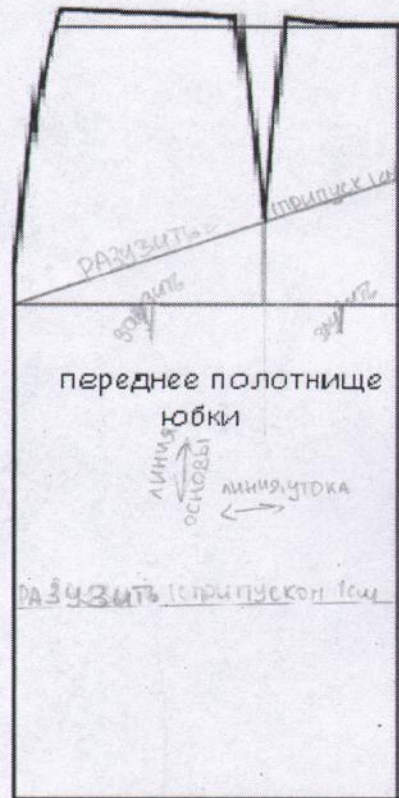 РАЗУЗИТЬ (припуск 1см
заузить
заузить
переднее полотнище
юбки
ЛИНИЯ
ОСНОВЫ
ЛИНИЯ УТОКА
РАЗУЗИТЬ (с припуском 1см